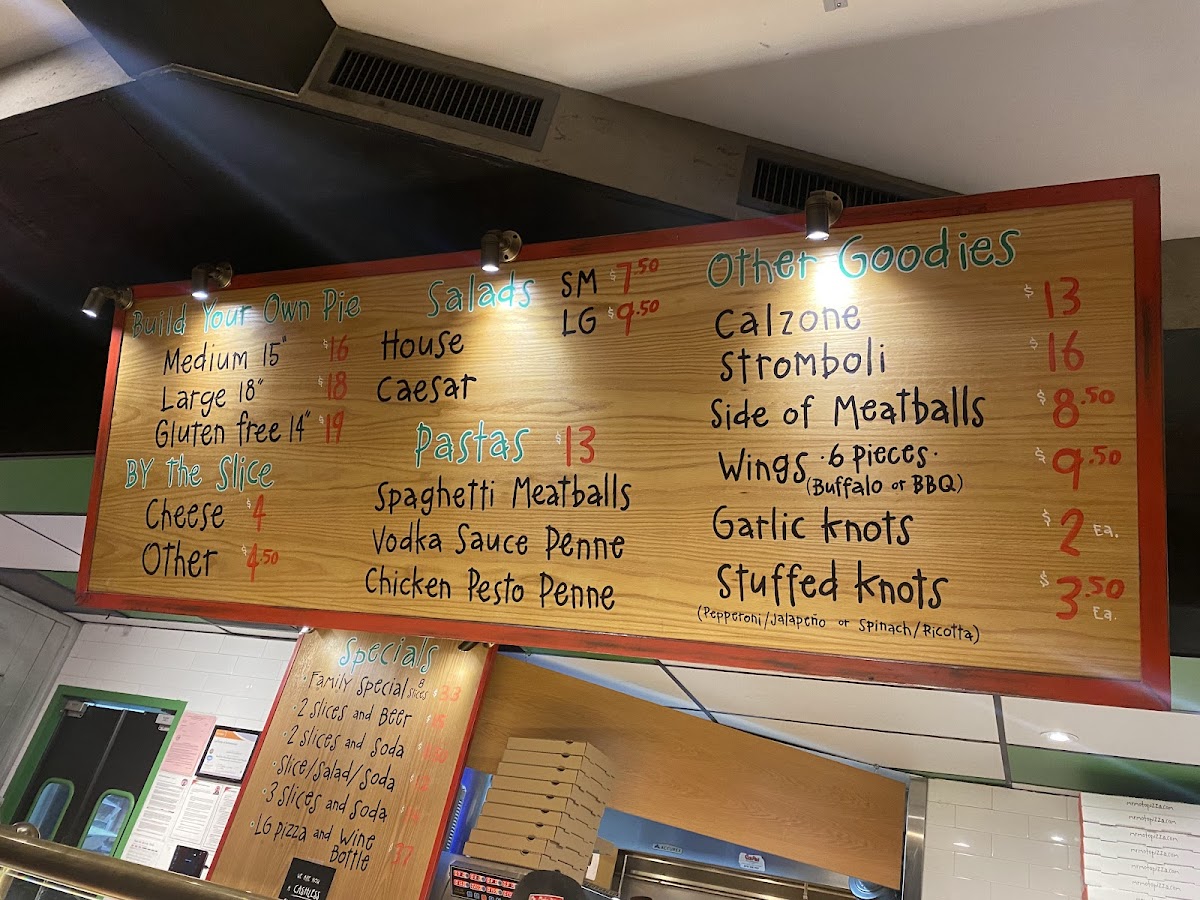 Build Your Own Pie
Medium 15" $16
Large 18" $18
Gluten free 14" $19
BY the Slice
Cheese $4
Other $4.50
Salads SM $7.50
LG $9.50
House
Caesar
Pastas $13
Spaghetti Meatballs
Vodka Sauce Penne
Chicken Pesto Penne
Other Goodies
Calzone $13
Stromboli $16
Side of Meatballs $8.50
Wings ·6 pieces· $9.50
(Buffalo or BBQ)
Garlic knots $2 Ea.
Stuffed knots $3.50 Ea.
(Pepperoni/Jalapeño or Spinach/Ricotta)
Specials
·Family Special 8 slices 33
·2 Slices and Beer
·2 Slices and Soda
·Slice/Salad/Soda
·3 Slices and Soda
·LG Pizza and Wine
Bottle 37
WE ARE NOW
CASHLESS